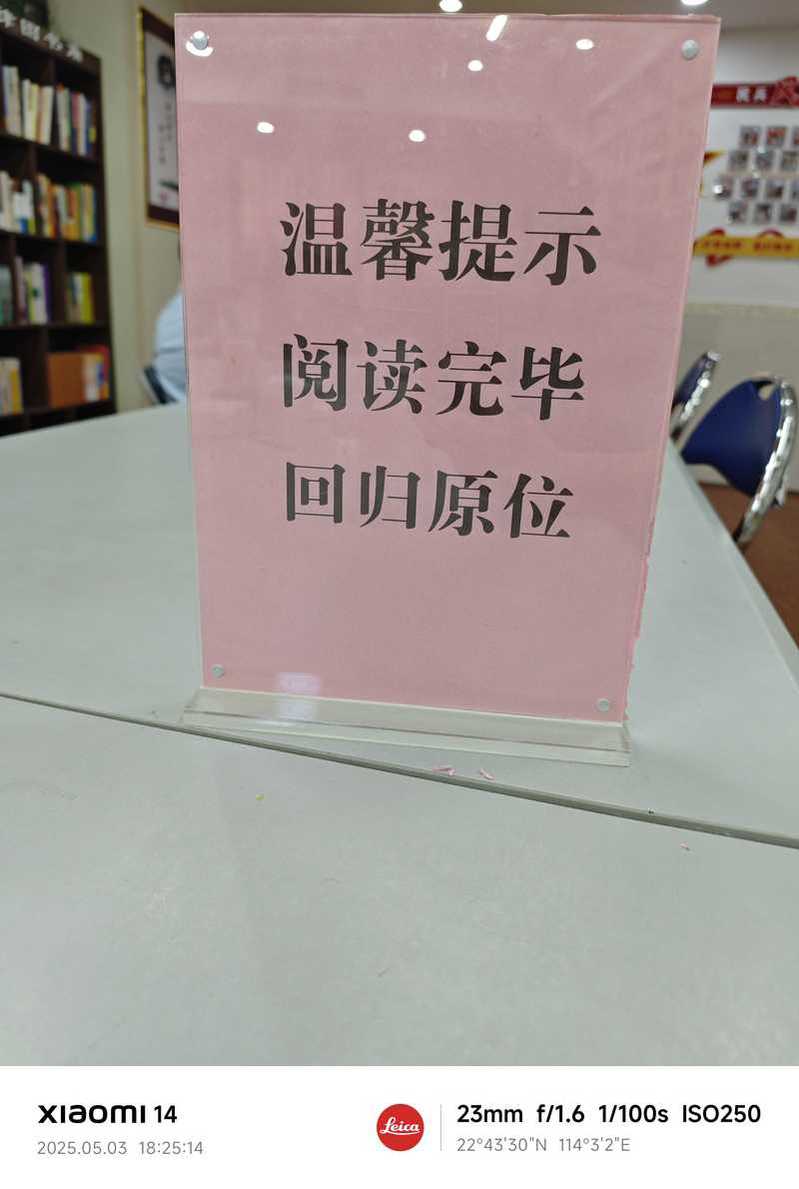 温馨提示
阅读完毕
回归原位
xiaomi 14
2025.05.03 18:25:14
Leica
23mm f/1.6 1/100s ISO250
22°43'30"N 114°3'2"E